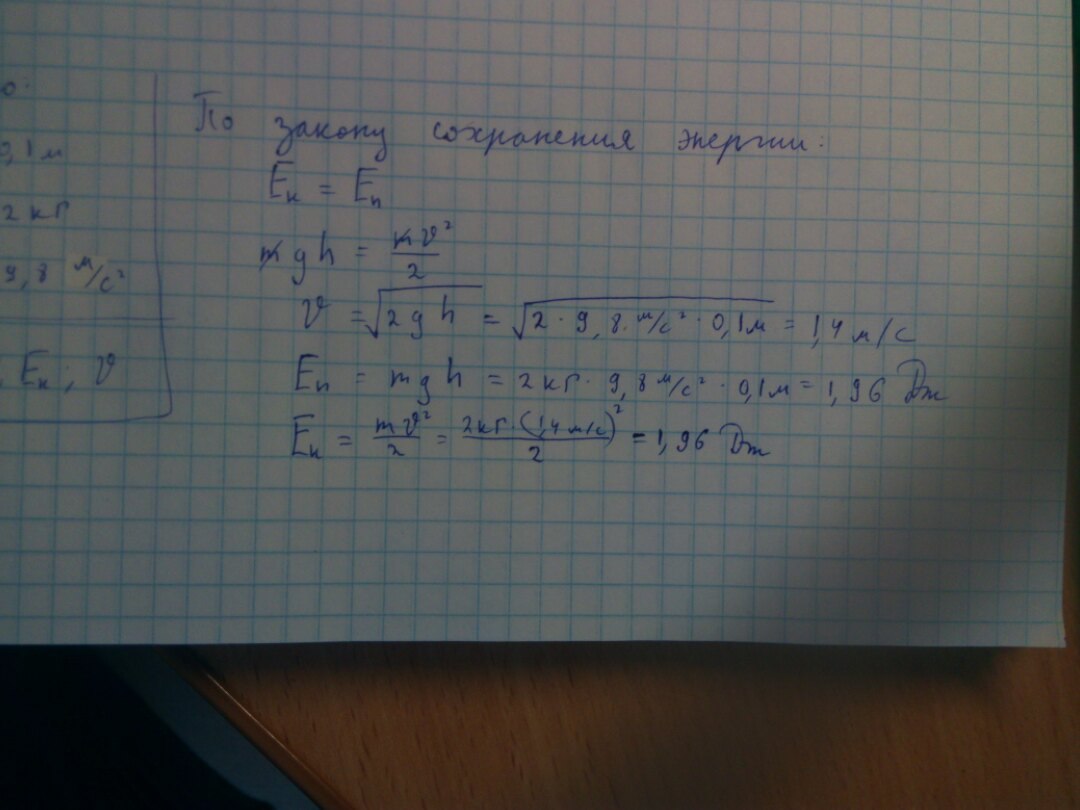 о:
0,1 м
2 кг
9,8 м/с²
Eк; υ
По закону сохранения энергии:
Eк = Eп
mgh = mυ²/2
υ = √2gh = √2 · 9,8 м/с² · 0,1м = 1,4 м/с
Eп = mgh = 2кг · 9,8 м/с² · 0,1м = 1,96 Дж
Eк = mυ²/2 = 2кг · (1,4 м/с)²/2 = 1,96 Дж